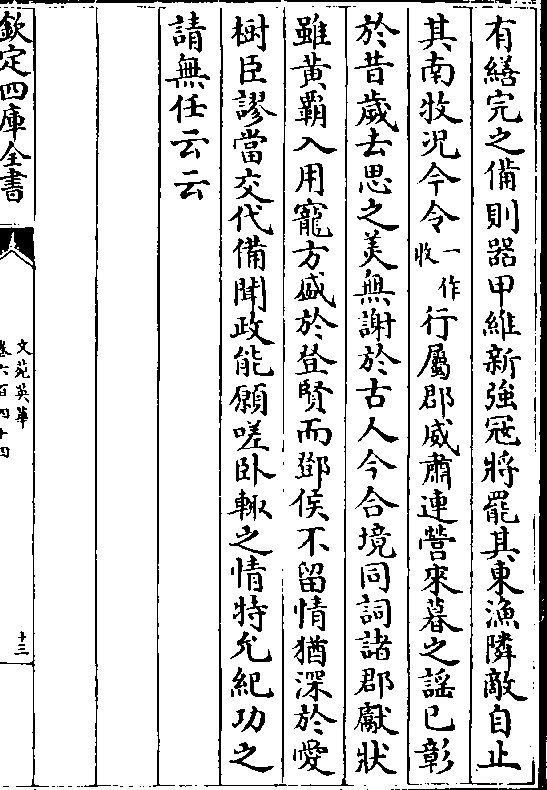 有繕完之備則器甲維新強冦將罷其東漁隣敵自止
其南牧况今令一作收行屬郡威肅連營來暮之謡已彰
於昔歲去思之美無謝於古人今合境同詞諸郡獻狀
雖黄霸入用寵方盛於登賢而鄧侯不留情猶深於愛
樹臣謬當交代備聞政能願嗟卧轍之情特允紀功之
請無任云云
欽定四庫全書
文苑英華
卷六百四十四
十三